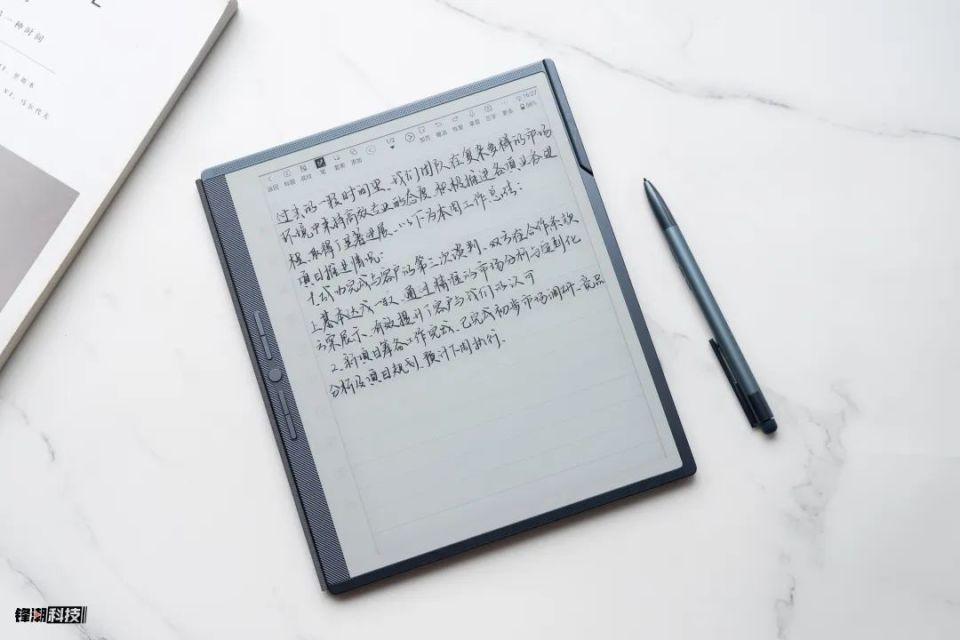 一种时间
返回 标题 笔 添加 1/2 加页 撤消 恢复 录音 识字 更多 16:27 98%
过去的一段时间里、我们团队在复杂多样的市场
环境中来持高效专业的态度积极推进各项业务进
程、取得了显著进展、以下为本周工作总结:
项目推进情况:
1.成功完成与客户的第三次谈判、双方在合作条款
上基本达成一致、通过精准的市场分析与定制化
方案展示、有效提升了客户与我们的认可
2.新项目筹备工作完成、已完成初步市场调研、竞品
分析及项目规划、预计下周执行.
锋潮科技